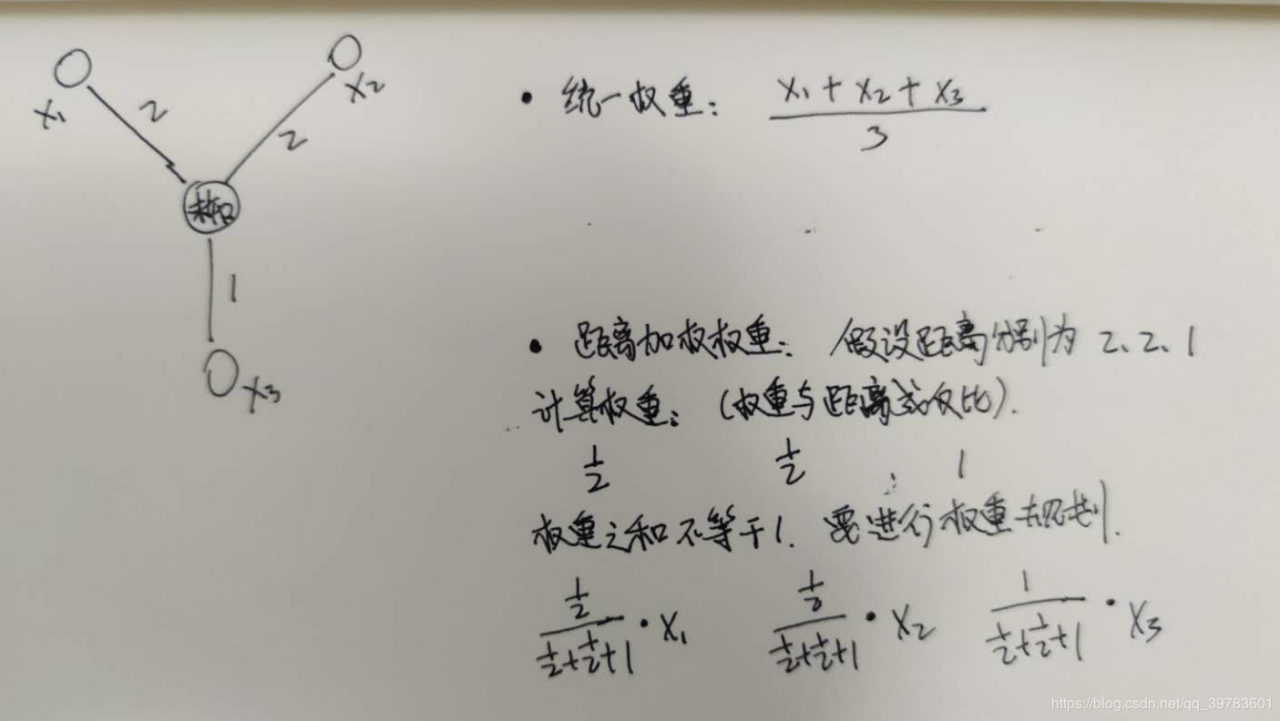 x₁
2
x₂
2
1
x₃
• 统一权重: (x₁ + x₂ + x₃) / 3
• 距离加权权重: 假设距离分别为 2、2、1
计算权重: (权重与距离成反比).
1/2 1/2 1
权重之和不等于1. 要进行权重规划.
(1/2)/(1/2+1/2+1) · x₁ (1/2)/(1/2+1/2+1) · x₂ 1/(1/2+1/2+1) · x₃
https://blog.csdn.net/qq_39783601